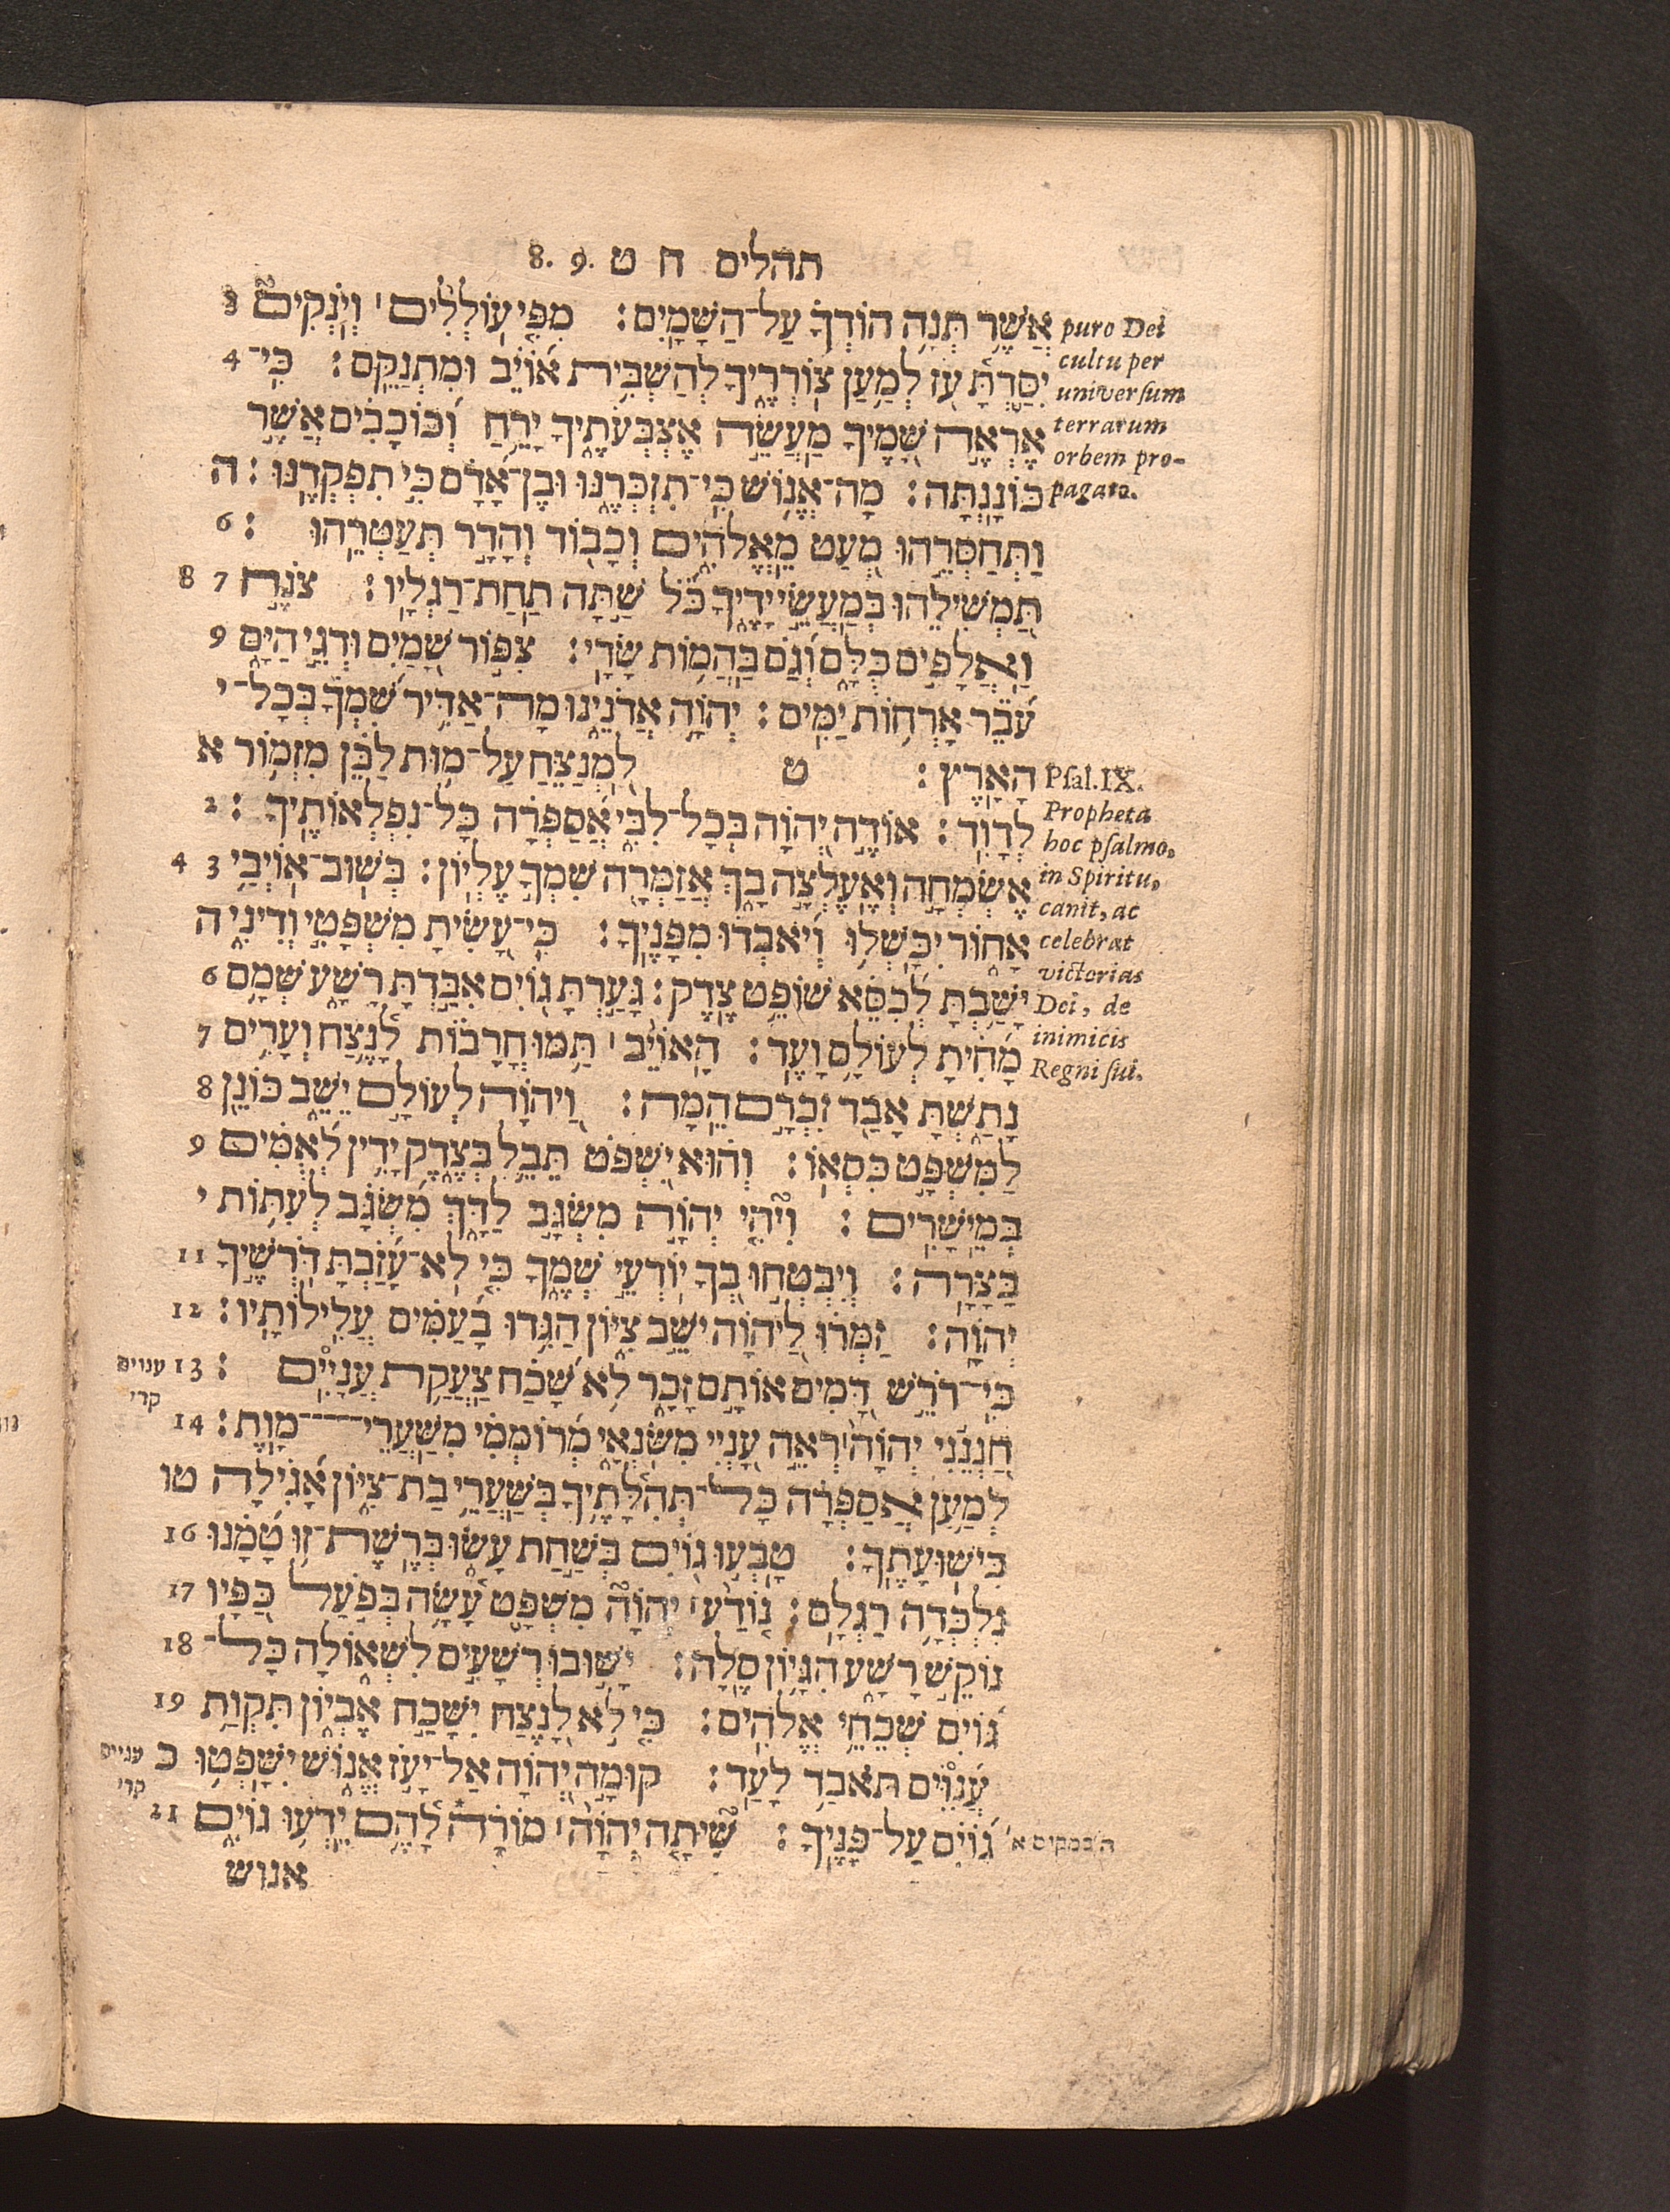 תהלים ח ט 8. 9.
אֲשֶׁר תְּנָה הוֹדְךָ עַל־הַשָּׁמָיִם: מִפִּי עוֹלְלִים ׀ וְיֹנְקִים 3
יִסַּדְתָּ עֹז לְמַעַן צוֹרְרֶיךָ לְהַשְׁבִּית אוֹיֵב וּמִתְנַקֵּם: כִּי־ 4
אֶרְאֶה שָׁמֶיךָ מַעֲשֵׂה אֶצְבְּעֹתֶיךָ יָרֵחַ וְכוֹכָבִים אֲשֶׁר
כּוֹנָנְתָּה: מָה־אֱנוֹשׁ כִּי־תִזְכְּרֶנּוּ וּבֶן־אָדָם כִּי תִפְקְדֶנּוּ: ה
וַתְּחַסְּרֵהוּ מְּעַט מֵאֱלֹהִים וְכָבוֹד וְהָדָר תְּעַטְּרֵהוּ : 6
תַּמְשִׁילֵהוּ בְּמַעֲשֵׂי יָדֶיךָ כֹּל שַׁתָּה תַחַת־רַגְלָיו: צֹנֶה 7 8
וַאֲלָפִים כֻּלָּם וְגַם בַּהֲמוֹת שָׂדָי: צִפּוֹר שָׁמַיִם וּדְגֵי הַיָּם 9
עֹבֵר אָרְחוֹת יַמִּים: יְהוָה אֲדֹנֵינוּ מָה־אַדִּיר שִׁמְךָ בְּכָל־ י
הָאָרֶץ: ט לַמְנַצֵּחַ עַל־מוּת לַבֵּן מִזְמוֹר א
לְדָוִד: אוֹדֶה יְהוָה בְּכָל־לִבִּי אֲסַפְּרָה כָּל־נִפְלְאוֹתֶיךָ: 2
אֶשְׂמְחָה וְאֶעֶלְצָה בָךְ אֲזַמְּרָה שִׁמְךָ עֶלְיוֹן: בְּשׁוּב־אוֹיְבַי 3 4
אָחוֹר יִכָּשְׁלוּ וְיֹאבְדוּ מִפָּנֶיךָ: כִּי־עָשִׂיתָ מִשְׁפָּטִי וְדִינִי ה
יָשַׁבְתָּ לְכִסֵּא שׁוֹפֵט צֶדֶק: גָּעַרְתָּ גוֹיִם אִבַּדְתָּ רָשָׁע שְׁמָם 6
מָחִיתָ לְעוֹלָם וָעֶד: הָאוֹיֵב ׀ תַּמּוּ חֳרָבוֹת לָנֶצַח וְעָרִים 7
נָתַשְׁתָּ אָבַד זִכְרָם הֵמָּה: וַיהוָה לְעוֹלָם יֵשֵׁב כּוֹנֵן 8
לַמִּשְׁפָּט כִּסְאוֹ: וְהוּא יִשְׁפֹּט תֵּבֵל בְּצֶדֶק יָדִין לְאֻמִּים 9
בְּמֵישָׁרִים: וִיהִי יְהוָה מִשְׂגָּב לַדָּךְ מִשְׂגָּב לְעִתּוֹת י
בַּצָּרָה: וְיִבְטְחוּ בְךָ יוֹדְעֵי שְׁמֶךָ כִּי לֹא־עָזַבְתָּ דֹרְשֶׁיךָ 11
יְהוָה: זַמְּרוּ לַיהוָה יֹשֵׁב צִיּוֹן הַגִּידוּ בָעַמִּים עֲלִילוֹתָיו: 12
כִּי־דֹרֵשׁ דָּמִים אוֹתָם זָכָר לֹא שָׁכַח צַעֲקַת עֲנָיִים: 13 ענוים
קרי
חָנְנֵנִי יְהוָה ׀ רְאֵה עָנְיִי מִשֹּׂנְאָי מְרוֹמְמִי מִשַּׁעֲרֵי־ מָוֶת: 14
לְמַעַן אֲסַפְּרָה כָּל־תְּהִלָּתֶיךָ בְּשַׁעֲרֵי בַת־צִיּוֹן אָגִילָה טו
בִּישׁוּעָתֶךָ: טָבְעוּ גוֹיִם בְּשַׁחַת עָשׂוּ בְּרֶשֶׁת־זוּ טָמָנוּ 16
נִלְכְּדָה רַגְלָם: נוֹדַע ׀ יְהוָה מִשְׁפָּט עָשָׂה בְּפֹעַל כַּפָּיו 17
נוֹקֵשׁ רָשָׁע הִגָּיוֹן סֶלָה: יָשׁוּבוּ רְשָׁעִים לִשְׁאוֹלָה כָּל־ 18
גּוֹיִם שְׁכֵחֵי אֱלֹהִים: כִּי לֹא לָנֶצַח יִשָּׁכַח אֶבְיוֹן תִּקְוַת 19
עֲנָוִים תֹּאבַד לָעַד: קוּמָה יְהוָה אַל־יָעֹז אֱנוֹשׁ יִשָּׁפְטוּ כ עניים
קרי
גוֹיִם עַל־פָּנֶיךָ: שִׁיתָה יְהוָה ׀ מוֹרָה* לָהֶם יֵדְעוּ גוֹיִם 21
אנוש
puro Dei
cultu per
universum
terrarum
orbem pro-
pagato.
Psal. IX.
Propheta
hoc psalmo,
in Spiritu,
canit, ac
celebrat
victorias
Dei, de
inimicis
Regni sui.
ה׳ במקום א׳